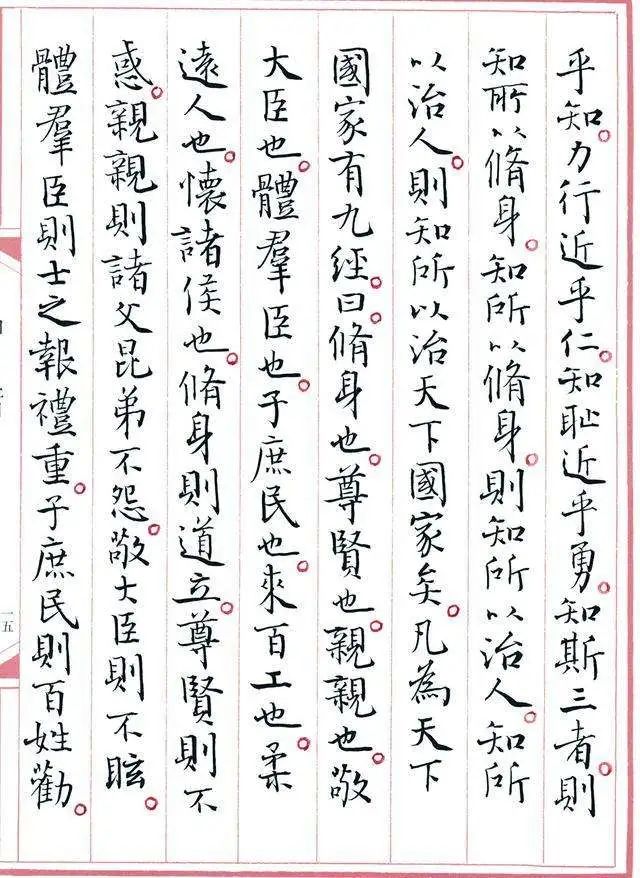 乎知。力行近乎仁。知恥近乎勇。知斯三者。則
知所以脩身。知所以脩身。則知所以治人。知所
以治人。則知所以治天下國家矣。凡為天下
國家有九經。曰。脩身也。尊賢也。親親也。敬
大臣也。體羣臣也。子庶民也。來百工也。柔
遠人也。懷諸侯也。脩身則道立。尊賢則不
惑。親親則諸父昆弟不怨。敬大臣則不眩。
體羣臣則士之報禮重。子庶民則百姓勸。
一五